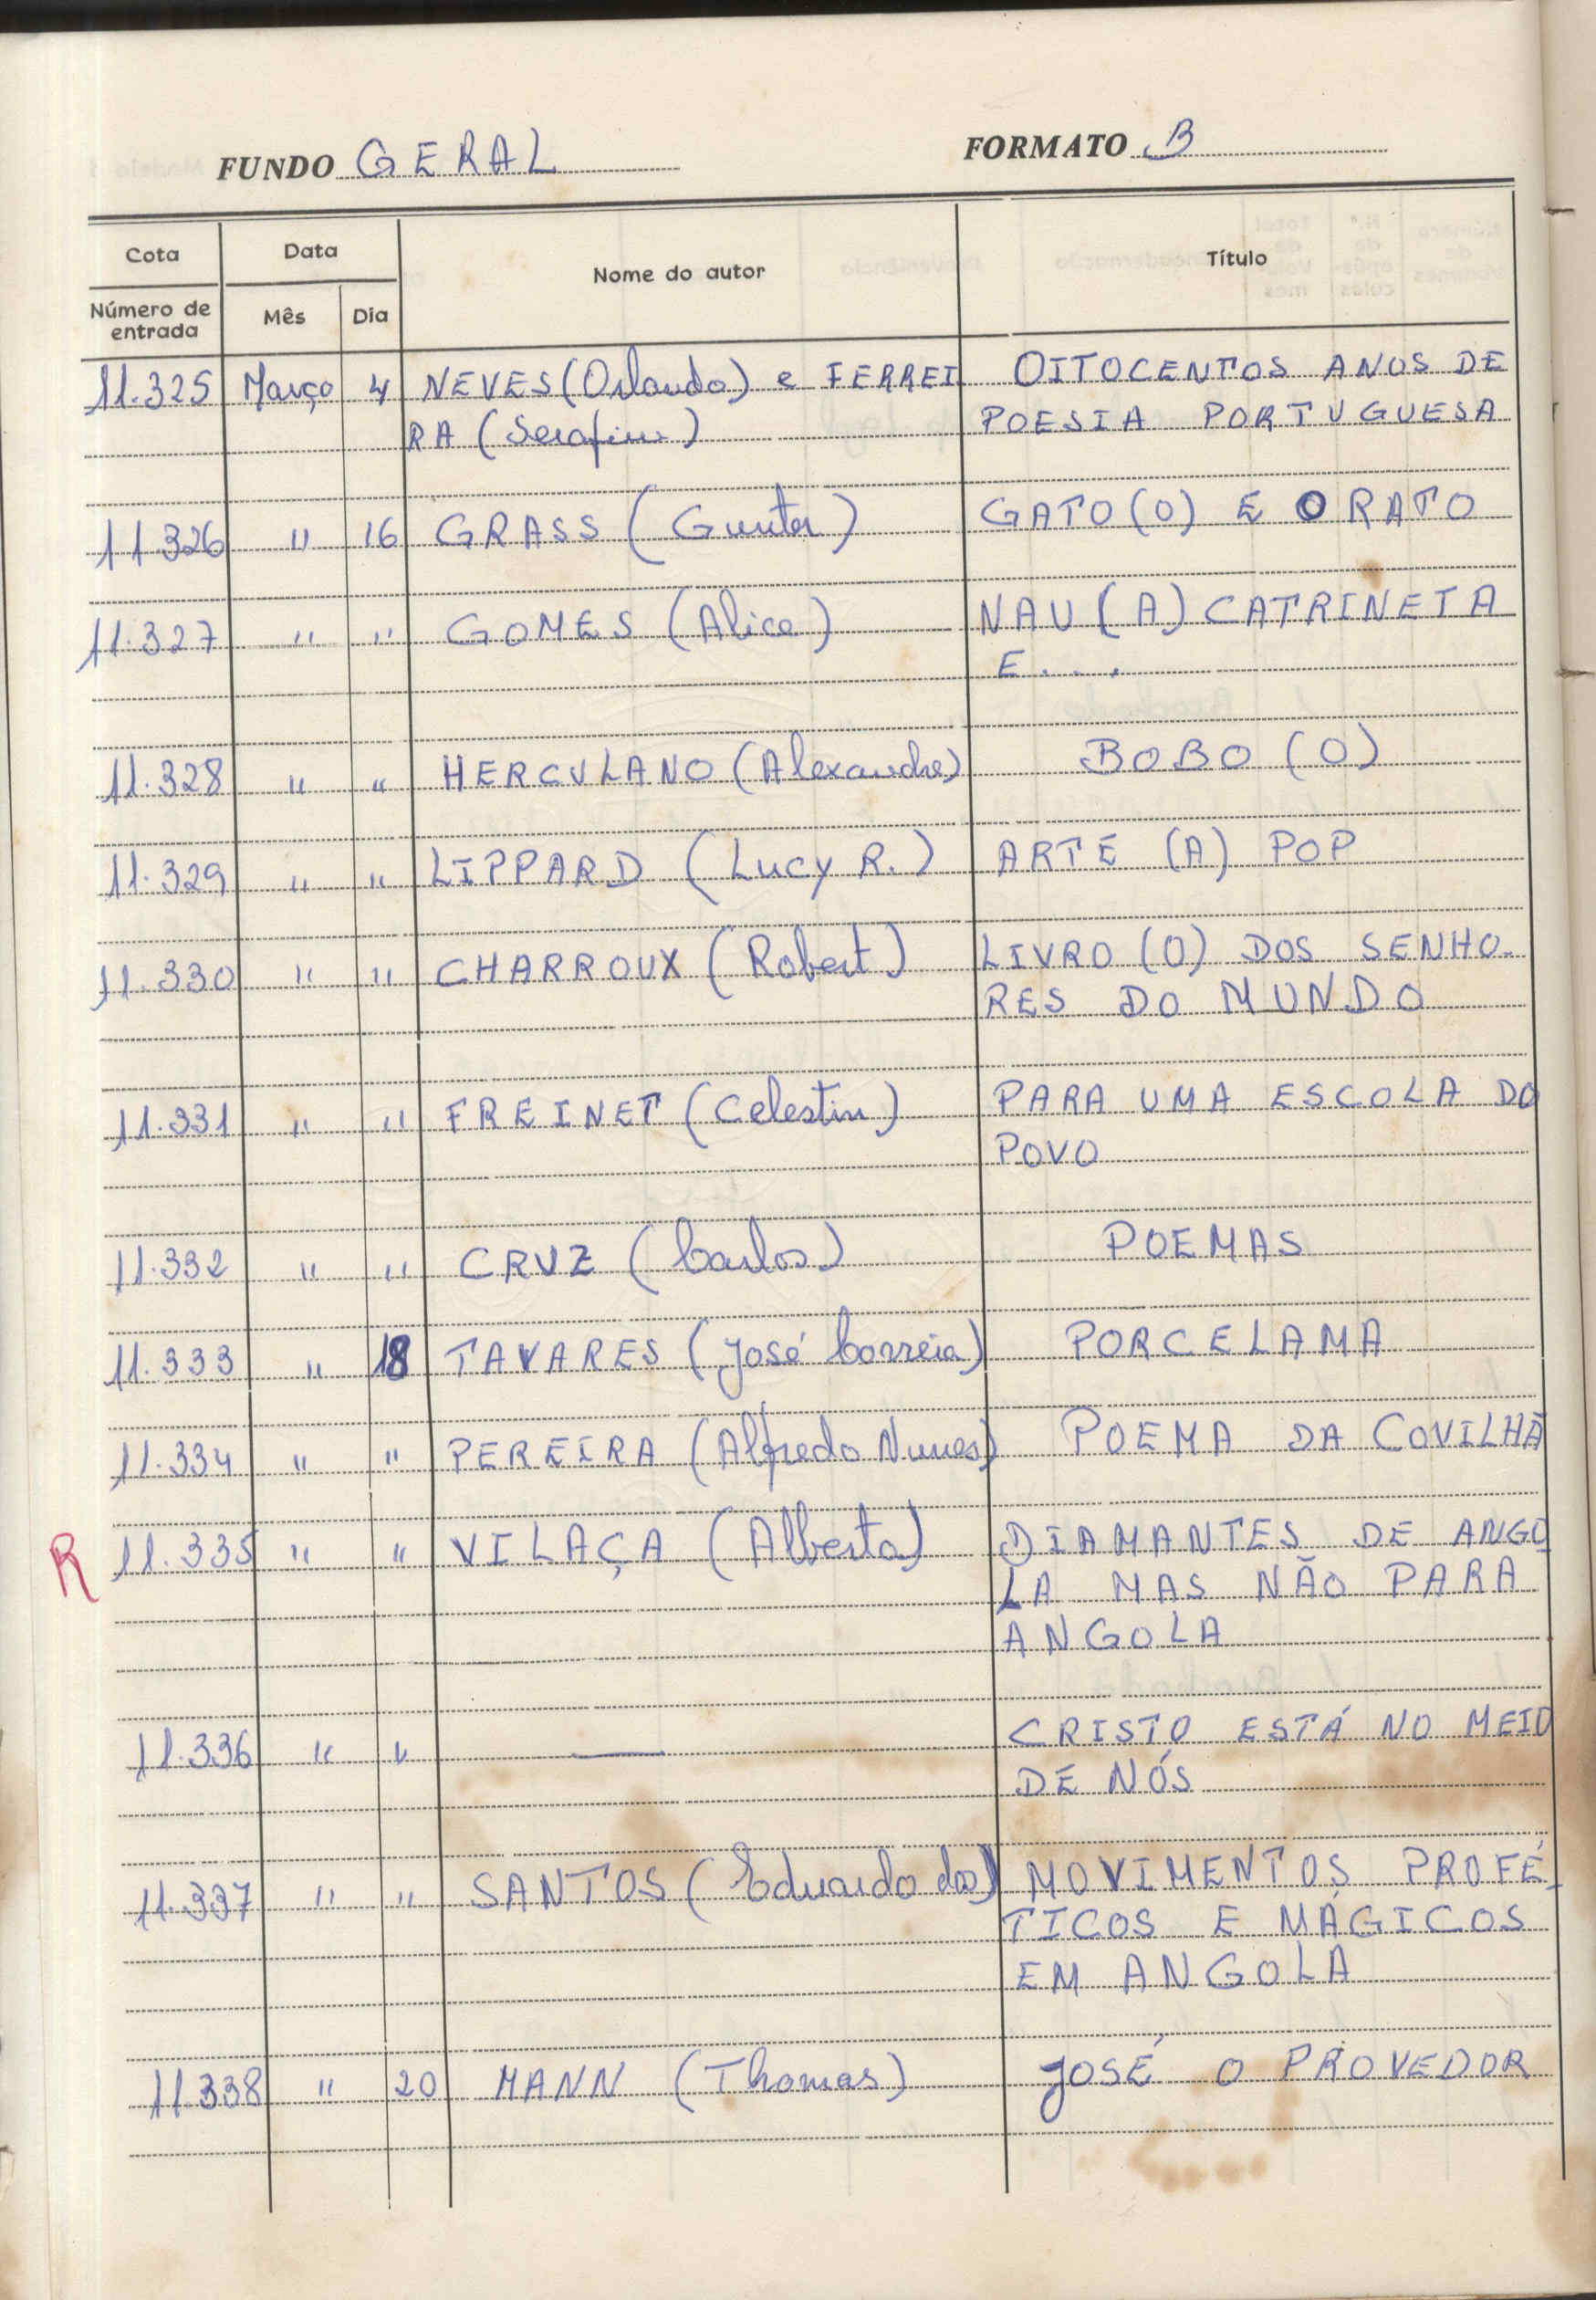 FUNDO GERAL FORMATO B
Cota Data Nome do autor Título
Número de entrada Mês Dia
11.325 Março 4 NEVES (Orlando) e FERREI OITOCENTOS ANOS DE
RA (Serafim) POESIA PORTUGUESA
11326 " 16 GRASS (Gunter) GATO (O) E O RATO
11.327 " " GOMES (Alice) NAU (A) CATRINETA
E....
11.328 " " HERCULANO (Alexandre) BOBO (O)
11.329 " " LIPPARD (Lucy R.) ARTE (A) POP
11.330 " " CHARROUX (Robert) LIVRO (O) DOS SENHO-
RES DO MUNDO
11.331 " " FREINET (Celestin) PARA UMA ESCOLA DO
POVO
11.332 " " CRUZ (Carlos) POEMAS
11.333 " 18 TAVARES (José Correia) PORCELAMA
11.334 " " PEREIRA (Alfredo Nunes) POEMA DA COVILHÃ
R 11.335 " " VILAÇA (Alberto) DIAMANTES DE ANGO
LA MAS NÃO PARA
ANGOLA
11.336 " " — CRISTO ESTÁ NO MEIO
DE NÓS
11.337 " " SANTOS (Eduardo dos) MOVIMENTOS PROFÉ-
TICOS E MÁGICOS
EM ANGOLA
11.338 " 20 MANN (Thomas) JOSÉ O PROVEDOR